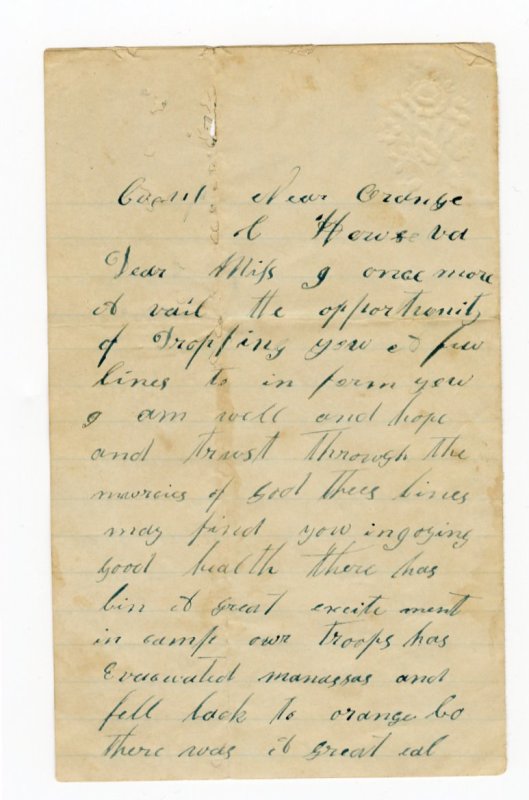 Camp Near Orange
C House va
Dear Miss I once more
A vail the opportunity
of Dropping you A few
lines to in form you
I am well and hope
and trust through the
murcies of God thees lines
may find you ingoying
good health there has
bin A great excite ment
in camp owr troops has
Evacuated manassas and
fell back to orange Co
there was A great eal